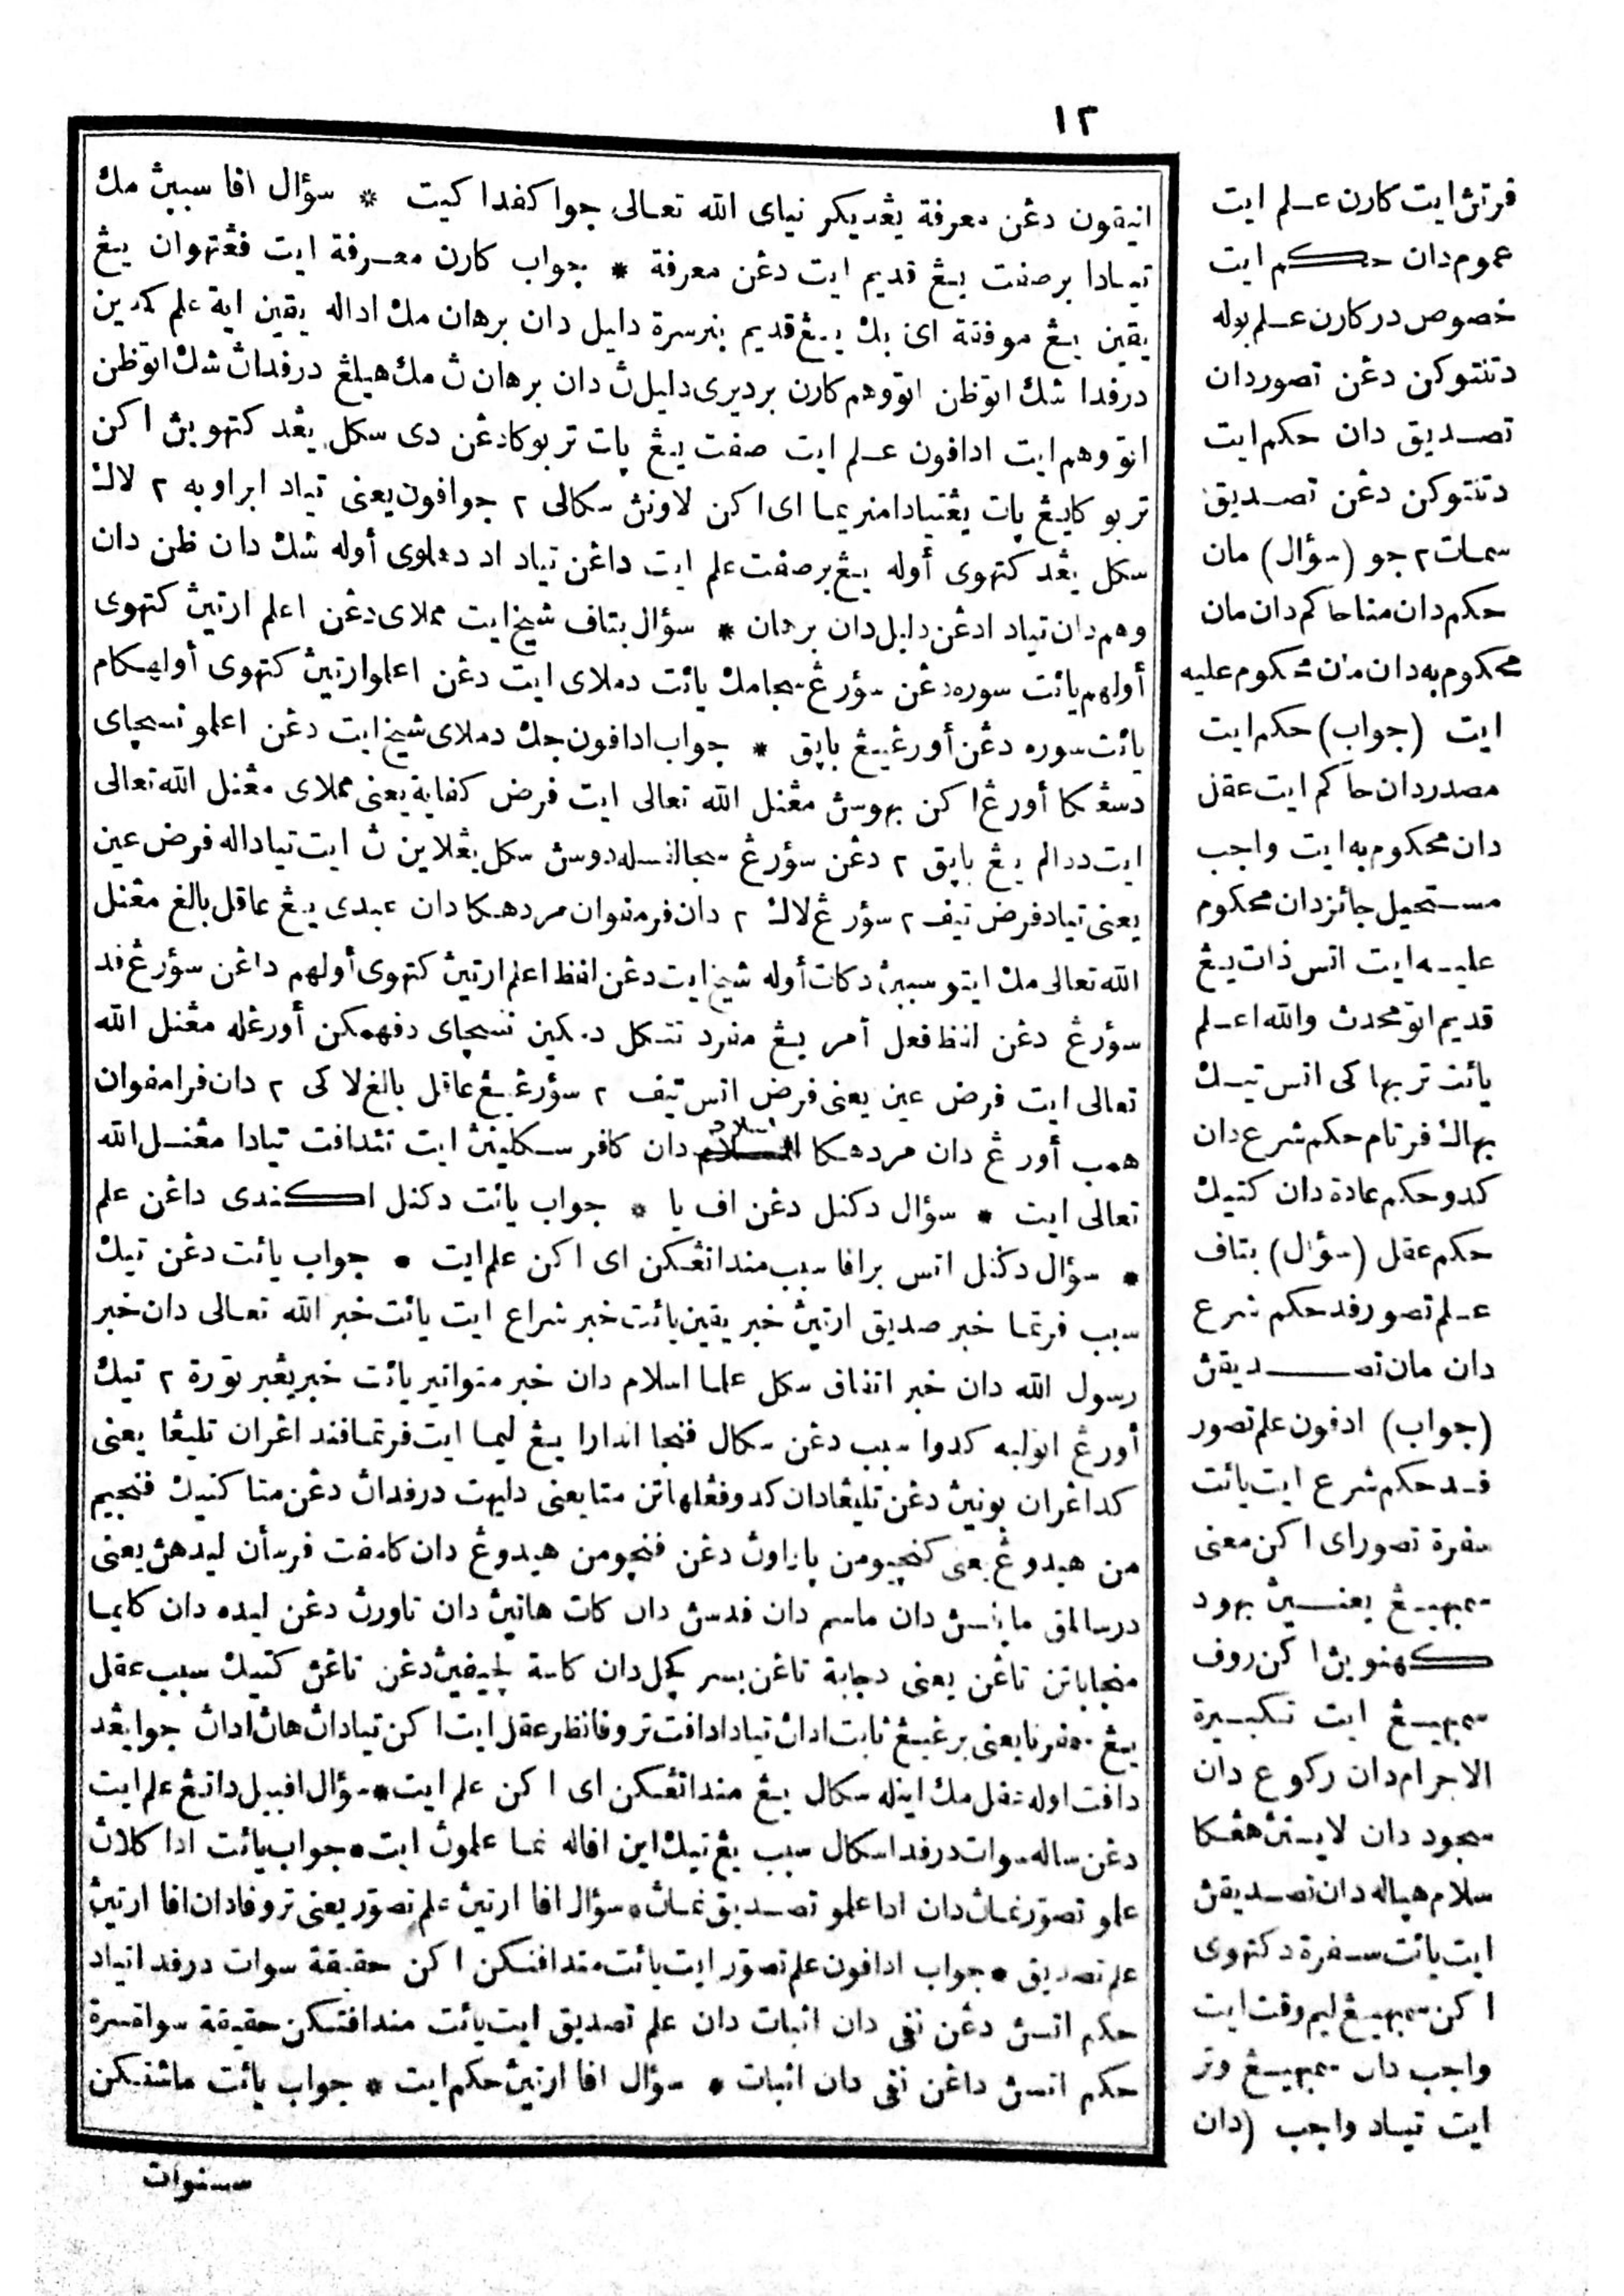 ١٢
انيقون دڠن معرفة يڠديكر نياى الله تعالى جوا كفدا كيت * سؤال افا سببڽ مك
تيادا برصفت يڠ قديم ايت دڠن معرفة * جواب كارن معرفة ايت فڠتهوان يڠ
يقين يڠ موفقة اى بك يڠ قديم بنرسرة دليل دان برهان مك اداله يقين اية علم كدين
درفدا شك اتوظن اتووهم كارن برديرى دليل ڽ دان برهان ڽ مك هيلڠ درفداڽ شك اتوظن
اتو وهم ايت ادافون علم ايت صفت يڠ ڽات تربوكادڠن دى سكل يڠد كتهوين اكن
تربو كايڠ ڽات يڠتيادامنريما اى اكن لاونڽ سكالى ٢ جوافون يعنى تياد ابراوبه ٢ لاك
سكل يڠد كتهوى أوله يڠ برصفت علم ايت داڠن تياد اد دملوى أوله شك دان ظن دان
وهم دان تياد ادڠن دليل دان برهان * سؤال بتاف شيخ ايت مملاى دڠن اعلم ارتيڽ كتهوى
أولهم يائت سوره دڠن سؤرڠ سجامك يائت دملاى ايت دڠن اعلموارتيڽ كتهوى أولهكام
يائت سوره دڠن أورڠ يڠ باڽق * جواب ادافون جك دملاى شيخ ايت دڠن اعلمو نسچاى
دسڠكا أورڠ اكن بهوسڽ مڠنل الله تعالى ايت فرض كفاية يعنى مملاى مڠنل الله تعالى
ايت ددالم يڠ باڽق ٢ دڠن سؤرڠ سجالفسله دوسڽ سكل يڠلاين ڽ ايت تياداله فرض عين
يعنى تياد فرض تيف ٢ سؤرڠ لاك ٢ دان فرمفوان مردهكا دان عبدى يڠ عاقل بالغ مڠنل
الله تعالى مك ايتو سببڽ دكات أوله شيخ ايت دڠن لفظ اعلم ارتيڽ كتهوى أولهم داڠن سؤرڠ فد
سؤرڠ دڠن لفظ فعل أمر يڠ مفرد تتكل دمكين نسچاى دفهمكن أورڠله مڠنل الله
تعالى ايت فرض عين يعنى فرض اتس تيف ٢ سؤرڠ يڠ عاقل بالغ لاكى ٢ دان فرامفوان
همب أورڠ دان مردهكا اسلام دان كافر سكلينڽ ايت تتدافت تيادا مڠنل الله
تعالى ايت * سؤال دكنل دڠن اف يا * جواب يائت دكنل اكندى داڠن علم
* سؤال دكنل اتس برافا سبب منداتڠكن اى اكن علم ايت * جواب يائت دڠن تيك
سبب فرتما خبر صديق ارتيڽ خبر يقين يائت خبر شراع ايت يائت خبر الله تعالى دان خبر
رسول الله دان خبر اتفاق سكل علما اسلام دان خبر متواتير يائت خبر يڠبر تورة ٢ تيك
أورڠ اتوليه كدوا سبب دڠن سكال فنچا اندارا يڠ ليما ايت فرتمافند اڠران تليڠا يعنى
كداڠران بونيڽ دڠن تليڠادان كدوفڠلهاتن متا يعنى دليهت درفداڽ دڠن متا كتيك فنچيم
من هيدوڠ يعنى كنچيومن ڽاراوڽ دڠن فنچومن هيدوڠ دان كامفت فرسأن ليدهڽ يعنى
درسالق مانسڽ دان ماسم دان فدسڽ دان كات هانيڽ دان تاورڽ دڠن ليده دان كايما
منجاباتن تاڠن يعنى دجابة تاڠن بسر كچل دان كاسة لچيڤيڽ دڠن تاڠن كتيك سبب عقل
يڠ سمفرنايعنى برڠ يڠ ثابت اداڽ تيادادافت تروفانظر عقل ايت اكن تياداڽ هاڽ اداڽ جوا يڠد
دافت اوله عقل مك اينله سكال يڠ منداتڠكن اى اكن علم ايت * سؤال افبيل داتڠ علم ايت
دڠن ساله سوات درفد اسكال سبب يڠ تيك اين افاله نما علموڽ ايت * جواب يائت ادا كالاڽ
علمو تصوّر نماڽ دان ادا علمو تصديق نماڽ * سؤال افا ارتيڽ علم تصوّر يعنى تروفادان افا ارتيڽ
علم تصديق * جواب ادافون علم تصوّر ايت يائت مندافتكن اكن حقيقة سوات درفد اتياد
حكم اتسڽ دڠن نفى دان اثبات دان علم تصديق ايت يائت مندافتكن حقيقة سواتسرة
حكم اتسڽ داڠن نفى دان اثبات * سؤال افا ارتيڽ حكم ايت * جواب يائت ماتفكن
سسوات
فرتڽ ايت كارن علم ايت
عموم دان حكم ايت
خصوص در كارن علم بوله
دتنتوكن دڠن تصوردان
تصديق دان حكم ايت
دتنتوكن دڠن تصديق
سمات ٢ جو (سؤال) مان
حكم دان منا حاكم دان مان
محكوم به دان مان محكوم عليه
ايت (جواب) حكم ايت
مصدر دان حاكم ايت عقل
دان محكوم به ايت واجب
مستحيل جائز دان محكوم
عليه ايت اتس ذات يڠ
قديم اتو محدث والله اعلم
يائت تربهاكى اتس تيك
بهاك فرتام حكم شرع دان
كدو حكم عادة دان كتيك
حكم عقل (سؤال) بتاف
علم تصور فد حكم شرع
دان مان تصديقڽ
(جواب) ادفون علم تصور
فد حكم شرع ايت يائت
سفرة تصور اى اكن معنى
سمبهيڠ يعنيڽ بهود
كهنوين اكن روف
سمبهيڠ ايت تكبيرة
الاحرام دان ركوع دان
سجود دان لاينڽ هڠكا
سلام هياله دان تصديقڽ
ايت يائت سفرة دكتهوى
اكن سمبهيڠ ليم وقت ايت
واجب دان سمبهيڠ وتر
ايت تياد واجب (دان